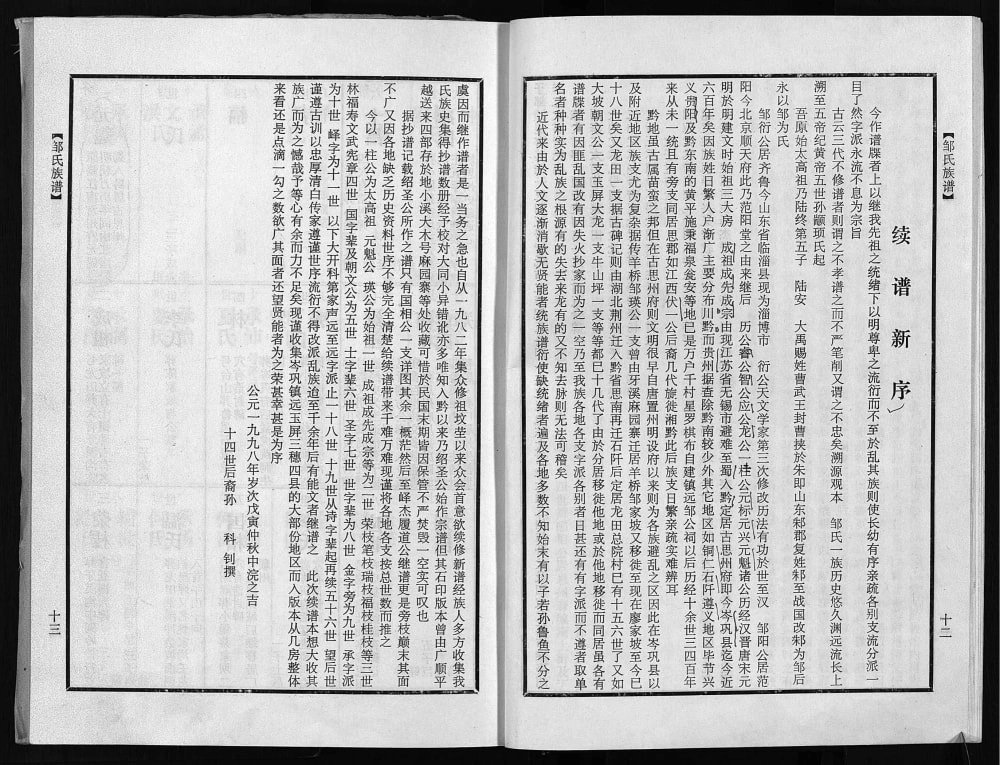 【邹氏族谱】
续谱新序
今作谱牒者上以继我先祖之统绪下以明尊卑之流衍而不至於乱其族则使长幼有序亲疏各别支流分派一
目了然字派永流不息为宗旨
古云三代不修谱者则谓之不孝谱之而不严笔削又谓之不忠矣溯源观本　邹氏一族历史悠久渊远流长上
溯至五帝纪黄帝五世孙颛顼氏起
吾原始太高祖乃陆终第五子　陆安　大禹赐姓曹武王封曹挟於朱即山东邾郡复姓邾至战国改邾为邹后
永以邹为氏
邹衍公居齐鲁今山东省临淄县现为淄博市　衍公天文学家第三次修改历法有功於世至汉　邹阳公居范
阳今北京顺天府此乃范阳堂之由来继后　历公睿公智公应公龙公一桂公元标元兴元魁诸公历经汉晋唐宋元
明於明建文时始祖三大房　成祖成先成宗由现江苏省无锡市避难至蜀入黔定居古思州府即今岑巩县迄今近
六百年矣因族姓日繁人户渐广主要分布川黔而贵州据查除黔南较少外其它地区如铜仁石阡遵义地区毕节兴
义贵阳及黔东南的黄平施秉福泉瓮安等地已是万户千村星罗棋布自建镇远邹公祠以后历经十余世三四百年
来从未一统且有旁支同居思郡如江西伏一公后裔几代旋徙湘黔此后族支日繁亲疏实难辨耳
黔地虽古属苗蛮之邦但在古思州府则文明很早自唐置州明设府以来则为各族避乱之区因此在岑巩县以
及附近地区族支尤为复杂据传羊桥邹瑛公一支曾由牙溪麻园寨迁居羊桥邹家坡又移徙至现在廖家坡至今已
十八世矣又龙田一支据古碑记则由湖北荆州迁入黔省思南再迁石阡后定居龙田总院村巳有十五六世了又如
大坡朝文公一支玉屏大龙一支牛山坪一支等等都巳十几代了由於分居移徙他地或於他地移徙而同居虽各有
谱牒者有因匪乱国改有因失火抄家而为之一空乃至我族各地各支字派各别者日甚还有有字派而不遵者取单
名者种种实为乱族之根源有的失去来龙有的又不知去脉则无法可稽矣
近代来由於人文逐渐消歇无贤能者统族谱衍使缺统绪者遍及各地多数不知始末有以子若孙鲁鱼不分之
十二
虞因而继作谱者是一当务之急也自从一九八二年集众修祖坟茔以来众会首意欲续修新谱经族人多方收集我
氏族史集得抄谱数册经予校对大同小异错讹亦多唯知入黔以来乃绍圣公始作宗谱但其石印版本曾由广顺平
越送来四部存於地小溪大木号麻园寨等处收藏可惜於民国末期皆因保管不严焚毁一空实可叹也
据抄谱记载绍圣公所作之谱只有国相公一支详图其余一概茫然后至峄杰履道公继谱更是旁枝颠末其面
不广又因各地缺乏历史资料世序不够完全清楚给续谱带来千难万难现谨将各地各支按总世数而推之
今以一柱公为太高祖　元魁公　瑛公为始祖一世　成祖成先成宗等为二世　荣枝笔枝瑞枝福枝桂枝等三世
林福寿文武宪章四世　国字辈及朝文公为五世　士字辈六世　圣字七世　世字辈为八世　金字旁为九世　承字派
为十世　峄字为十一世　以下大开科第家声远至远字派止一十八世　十九世从诗字辈起再续五十六世　望后世
谨遵古训以忠厚清白传家遵谨世序流衍不得改派乱族迨至千余年后有能文者继谱之　此次续谱本想大收其
族广而为之憾哉予等心有余而力不足矣现谨收集岑巩镇远玉屏三穗四县的大部份地区而入版本从几房整体
来看还是点滴一勾之数欲广其面者还望贤能者为之荣甚幸甚是为序
公元一九九八年岁次戊寅仲秋中浣之吉
十四世后裔孙　科钊撰
【邹氏族谱】
十三